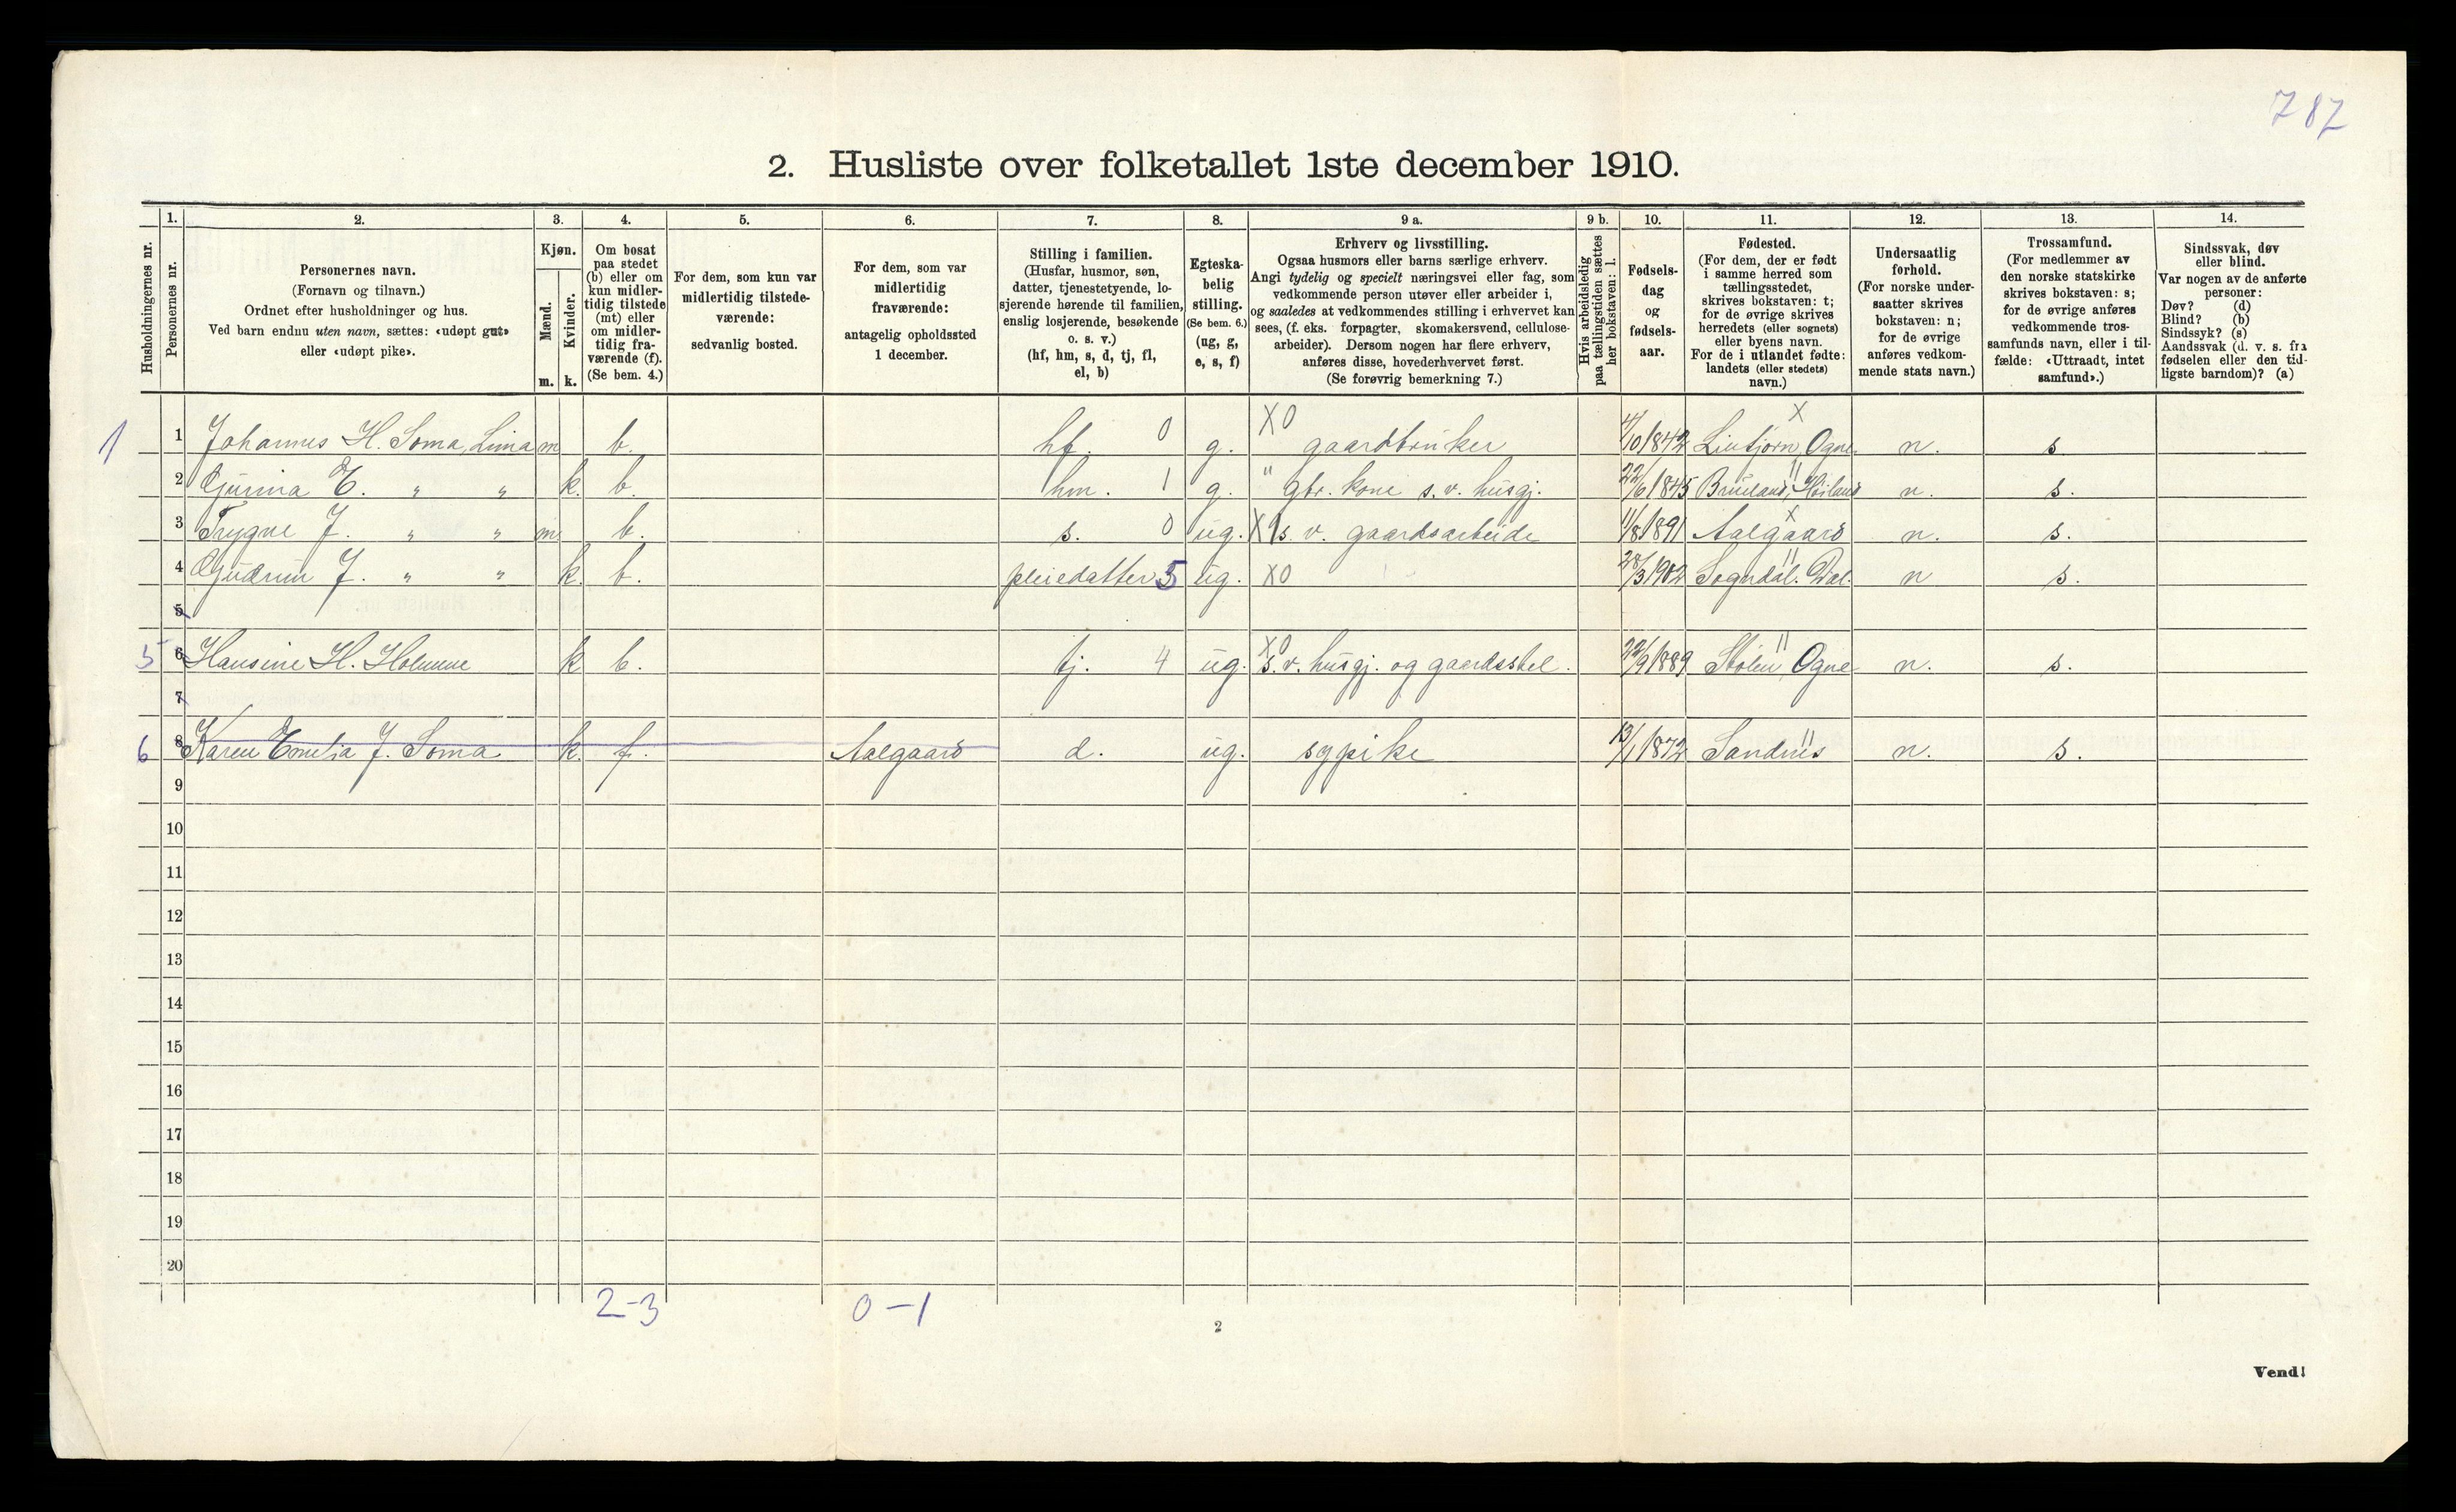 787
2. Husliste over folketallet 1ste december 1910.
Husholdningernes nr.
1.
Personernes nr.
2.
Personernes navn.
(Fornavn og tilnavn.)
Ordnet efter husholdninger og hus.
Ved barn endnu uten navn, sættes: «udøpt gut»
eller «udøpt pike».
3.
Kjøn.
Mænd.
m.
Kvinder.
k.
4.
Om bosat
paa stedet
(b) eller om
kun midler-
tidig tilstede
(mt) eller
om midler-
tidig fra-
værende (f).
(Se bem. 4.)
5.
For dem, som kun var
midlertidig tilstede-
værende:
sedvanlig bosted.
6.
For dem, som var
midlertidig
fraværende:
antagelig opholdssted
1 december.
7.
Stilling i familien.
(Husfar, husmor, søn,
datter, tjenestetyende, lo-
sjerende hørende til familien,
enslig losjerende, besøkende
o. s. v.)
(hf, hm, s, d, tj, fl,
el, b)
8.
Egteska-
belig
stilling.
(Se bem. 6.)
(ug, g,
e, s, f)
9 a.
Erhverv og livsstilling.
Ogsaa husmors eller barns særlige erhverv.
Angi tydelig og specielt næringsvei eller fag, som
vedkommende person utøver eller arbeider i,
og saaledes at vedkommendes stilling i erhvervet kan
sees, (f. eks. forpagter, skomakersvend, cellulose-
arbeider). Dersom nogen har flere erhverv,
anføres disse, hovederhvervet først.
(Se forøvrig bemerkning 7.)
9 b.
Hvis arbeidsledig
paa tællingstiden sættes
her bokstaven: l.
10.
Fødsels-
dag
og
fødsels-
aar.
11.
Fødested.
(For dem, der er født
i samme herred som
tællingsstedet,
skrives bokstaven: t;
for de øvrige skrives
herredets (eller sognets)
eller byens navn.
For de i utlandet fødte:
landets (eller stedets)
navn.)
12.
Undersaatlig
forhold.
(For norske under-
saatter skrives
bokstaven: n;
for de øvrige
anføres vedkom-
mende stats navn.)
13.
Trossamfund.
(For medlemmer av
den norske statskirke
skrives bokstaven: s;
for de øvrige anføres
vedkommende tros-
samfunds navn, eller i til-
fælde: «Uttraadt, intet
samfund».)
14.
Sindssvak, døv
eller blind.
Var nogen av de anførte
personer:
Døv? (d)
Blind? (b)
Sindssyk? (s)
Aandssvak (d. v. s. fra
fødselen eller den tid-
ligste barndom)? (a)
1 1 Johannes H. Soma, Lima m b. hf. 0 g. X0 gaardbruker /10 1842 Ogne X n. s.
2 Gurina E. " " k. b. hm. 1 g. " gbr. kone s. v. husgj. 22/6 1845 Høiland " n. s.
3 Trygve J. " " m. b. s. 0 ug. X s. v. gaardsarbeide /8 1891 Aalgaard X n. s.
4 Gudrun J. " " k. b. pleiedatter 5 ug. X0 28/3 1902 Sogndal. Dal. " n s.
5
5 6 Hansine H. k b. tj. 4 ug. X0 s. v. husgj. og gaardsstel. 22/9 1889 Stølen, Ogne " n. s.
7
6 8 Karen Emelia J. Soma k. f. Aalgaard d. ug. sypike 13/1 1872 Sandnes " n. s.
9
10
11
12
13
14
15
16
17
18
19
20
2-3 0-1
2
Vend!